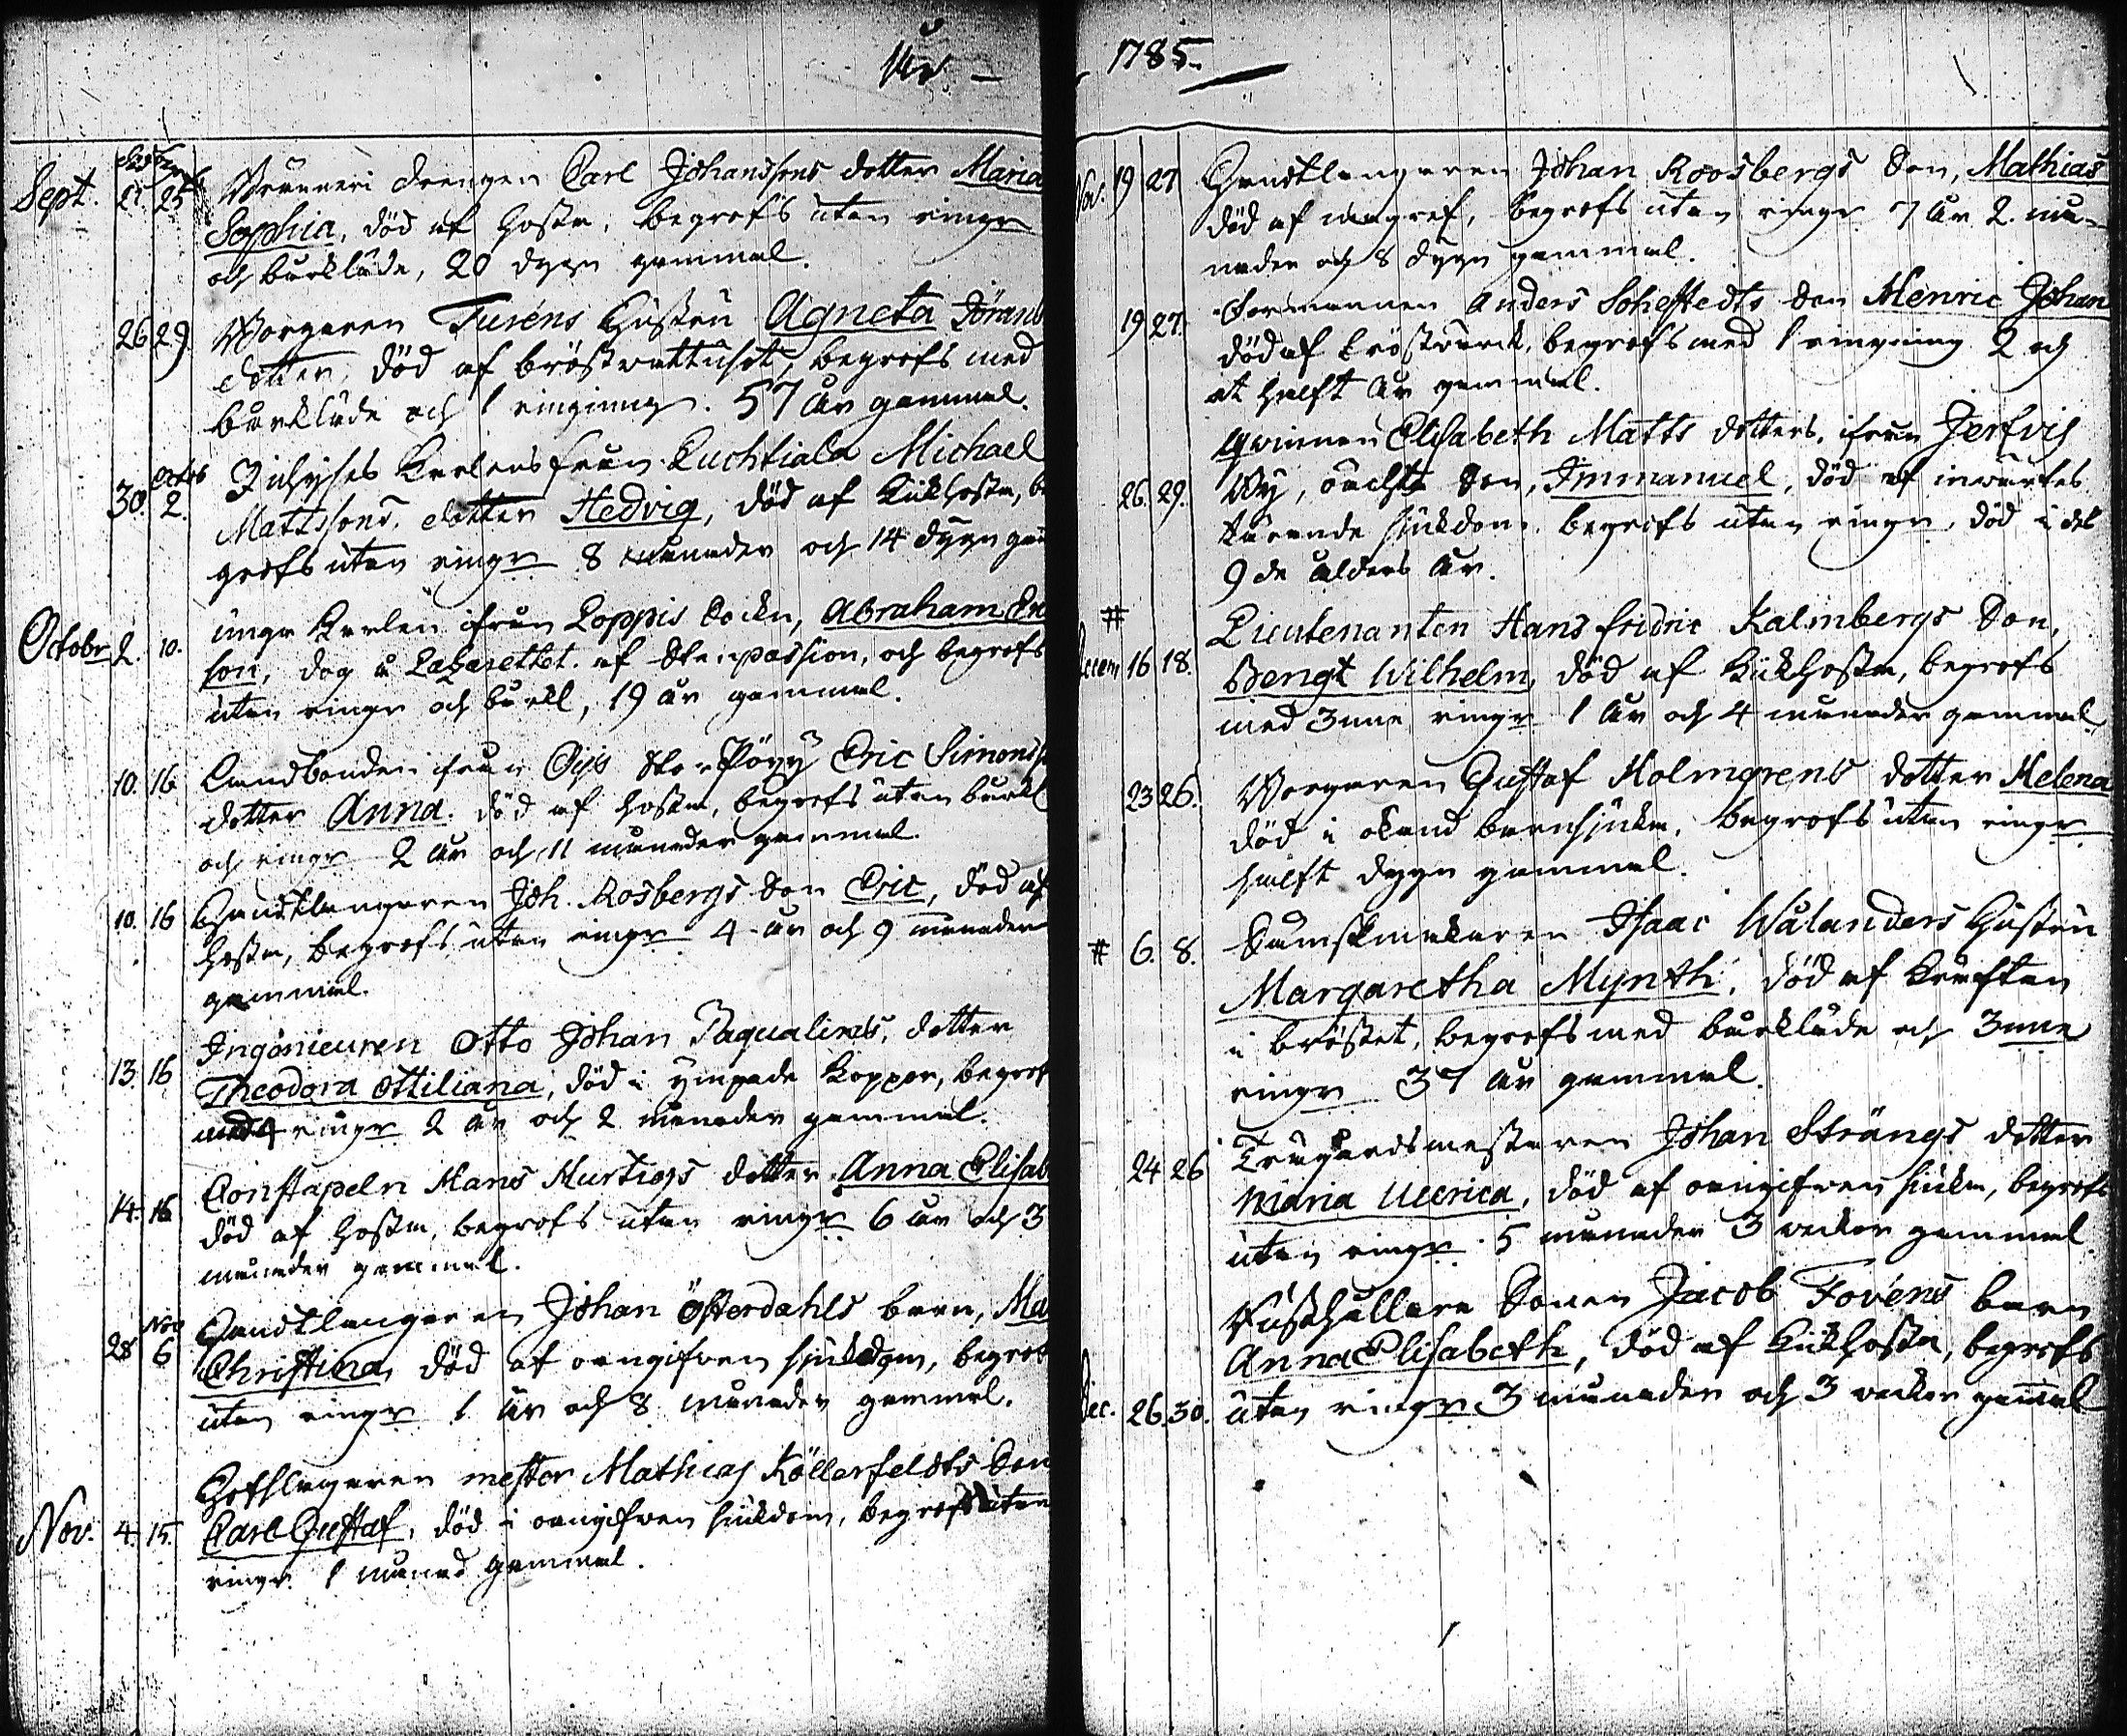 År 1785.
Sept. 21 25 Brunneri drengen Carl Johanssons dotter Maria
Sophia, död af hosta, begrofs utan ringn
och bårkläde, 20 dygn gammal.
26 29 Borgaren Turéns Hustru Agneta Jörans
dotter, död af bröstvattusot, begrofs med
bårkläde och 1 ringning. 57 år gammal.
30. Octob 2. Karlens från Luchtiala Michael
Mattssons, dotter Hedvig, död af kikhosta, be
grofs utan ringn 8 månader och 14 dygn gam
Octobr 2. 10. unga Karlen ifrån Poppis Abraham Eric
son, dog å Lazarettet af Sten passion, och begrofs
utan ringn och bårkl, 19 år gammal.
10. 16 Landbonden ifrån Eric Simons
dotter Anna. död af hosta, begrofs utan bårkl
och ringn 2 år och 11 månader gammal.
10. 16 Handtlangaren Joh. Rosbergs Son Eric, död af
hosta, begrofs utan ringn 4 år och 9 månader
gammal.
13. 16 Ingönieuren Otto Johan Paqualines, dotter
Theodora Ottiliana, död i ympade Koppor, begrof
med 4 ringn 2 år och 2 månader gammal.
14. 16 Constapeln Hans Hurtigs dotter Anna Elisab
död af hosta, begrofs utan ringn 6 år och 3
månader gammal.
28 Nov 6 Handtlangaren Johan Österdahls barn, Ma
Christina, död af oangifven sjukdom, begrof
utan ringn 1 år och 8 månader gammal.
Nov. 4. 15. mester Mathias Köllerfeldts Son
Carl Gustaf, död i oangifven sjukdom, begrofs utan
ringn. 1 månad gammal.
Nov. 19 27 Handtlangaren Johan Roosbergs Son, Mathias
död af begrofs utan ringn 7 år 2. må-
nader och 8 dygn gammal.
19 27. Formannen Anders Sohlstedts Son Henric Johan
död af bröstvärck, begrofs med 1 ringning 2 och
et halft år gammal.
26. 29. Qwinnan Elisabeth Matts dotters, ifrån Jerfvis
By, oächta Son, Immanuel, död af invärtes
tärande sjukdom. begrofs utan ringn, död i det
9de ålders år.
# Decem 16 18. Lieutenanten Hans Fridric Kalmbergs Son,
Bengt Wilhelm, död af Kikhosta, begrofs
med 3nne ringn 1 år och 4 månader gammal.
23 26. Borgaren Gustaf Holmgrens dotter Helena
död i okänd barnsjuka, begrofs utan ringn
halft dygn gammal.
# 6. 8. Isaac Wålanders Hustru
Margaretha Mynth, död af kräftan
i bröstet, begrofs med bårkläde och 3nne
ringn 37 år gammal.
24 26 Trägårdsmästaren Johan Strångs dotter
Maria Ulerica, död af oangifven sjuka, begrofs
utan ringn. 5 månader 3 veckor gammal
Dec. 26. 30. Rusthållare Sonen Jacob Fovéns barn
Anna Elisabeth, död af Kikhosta, begrofs
utan ringn 3 månader och 3 veckor gamal